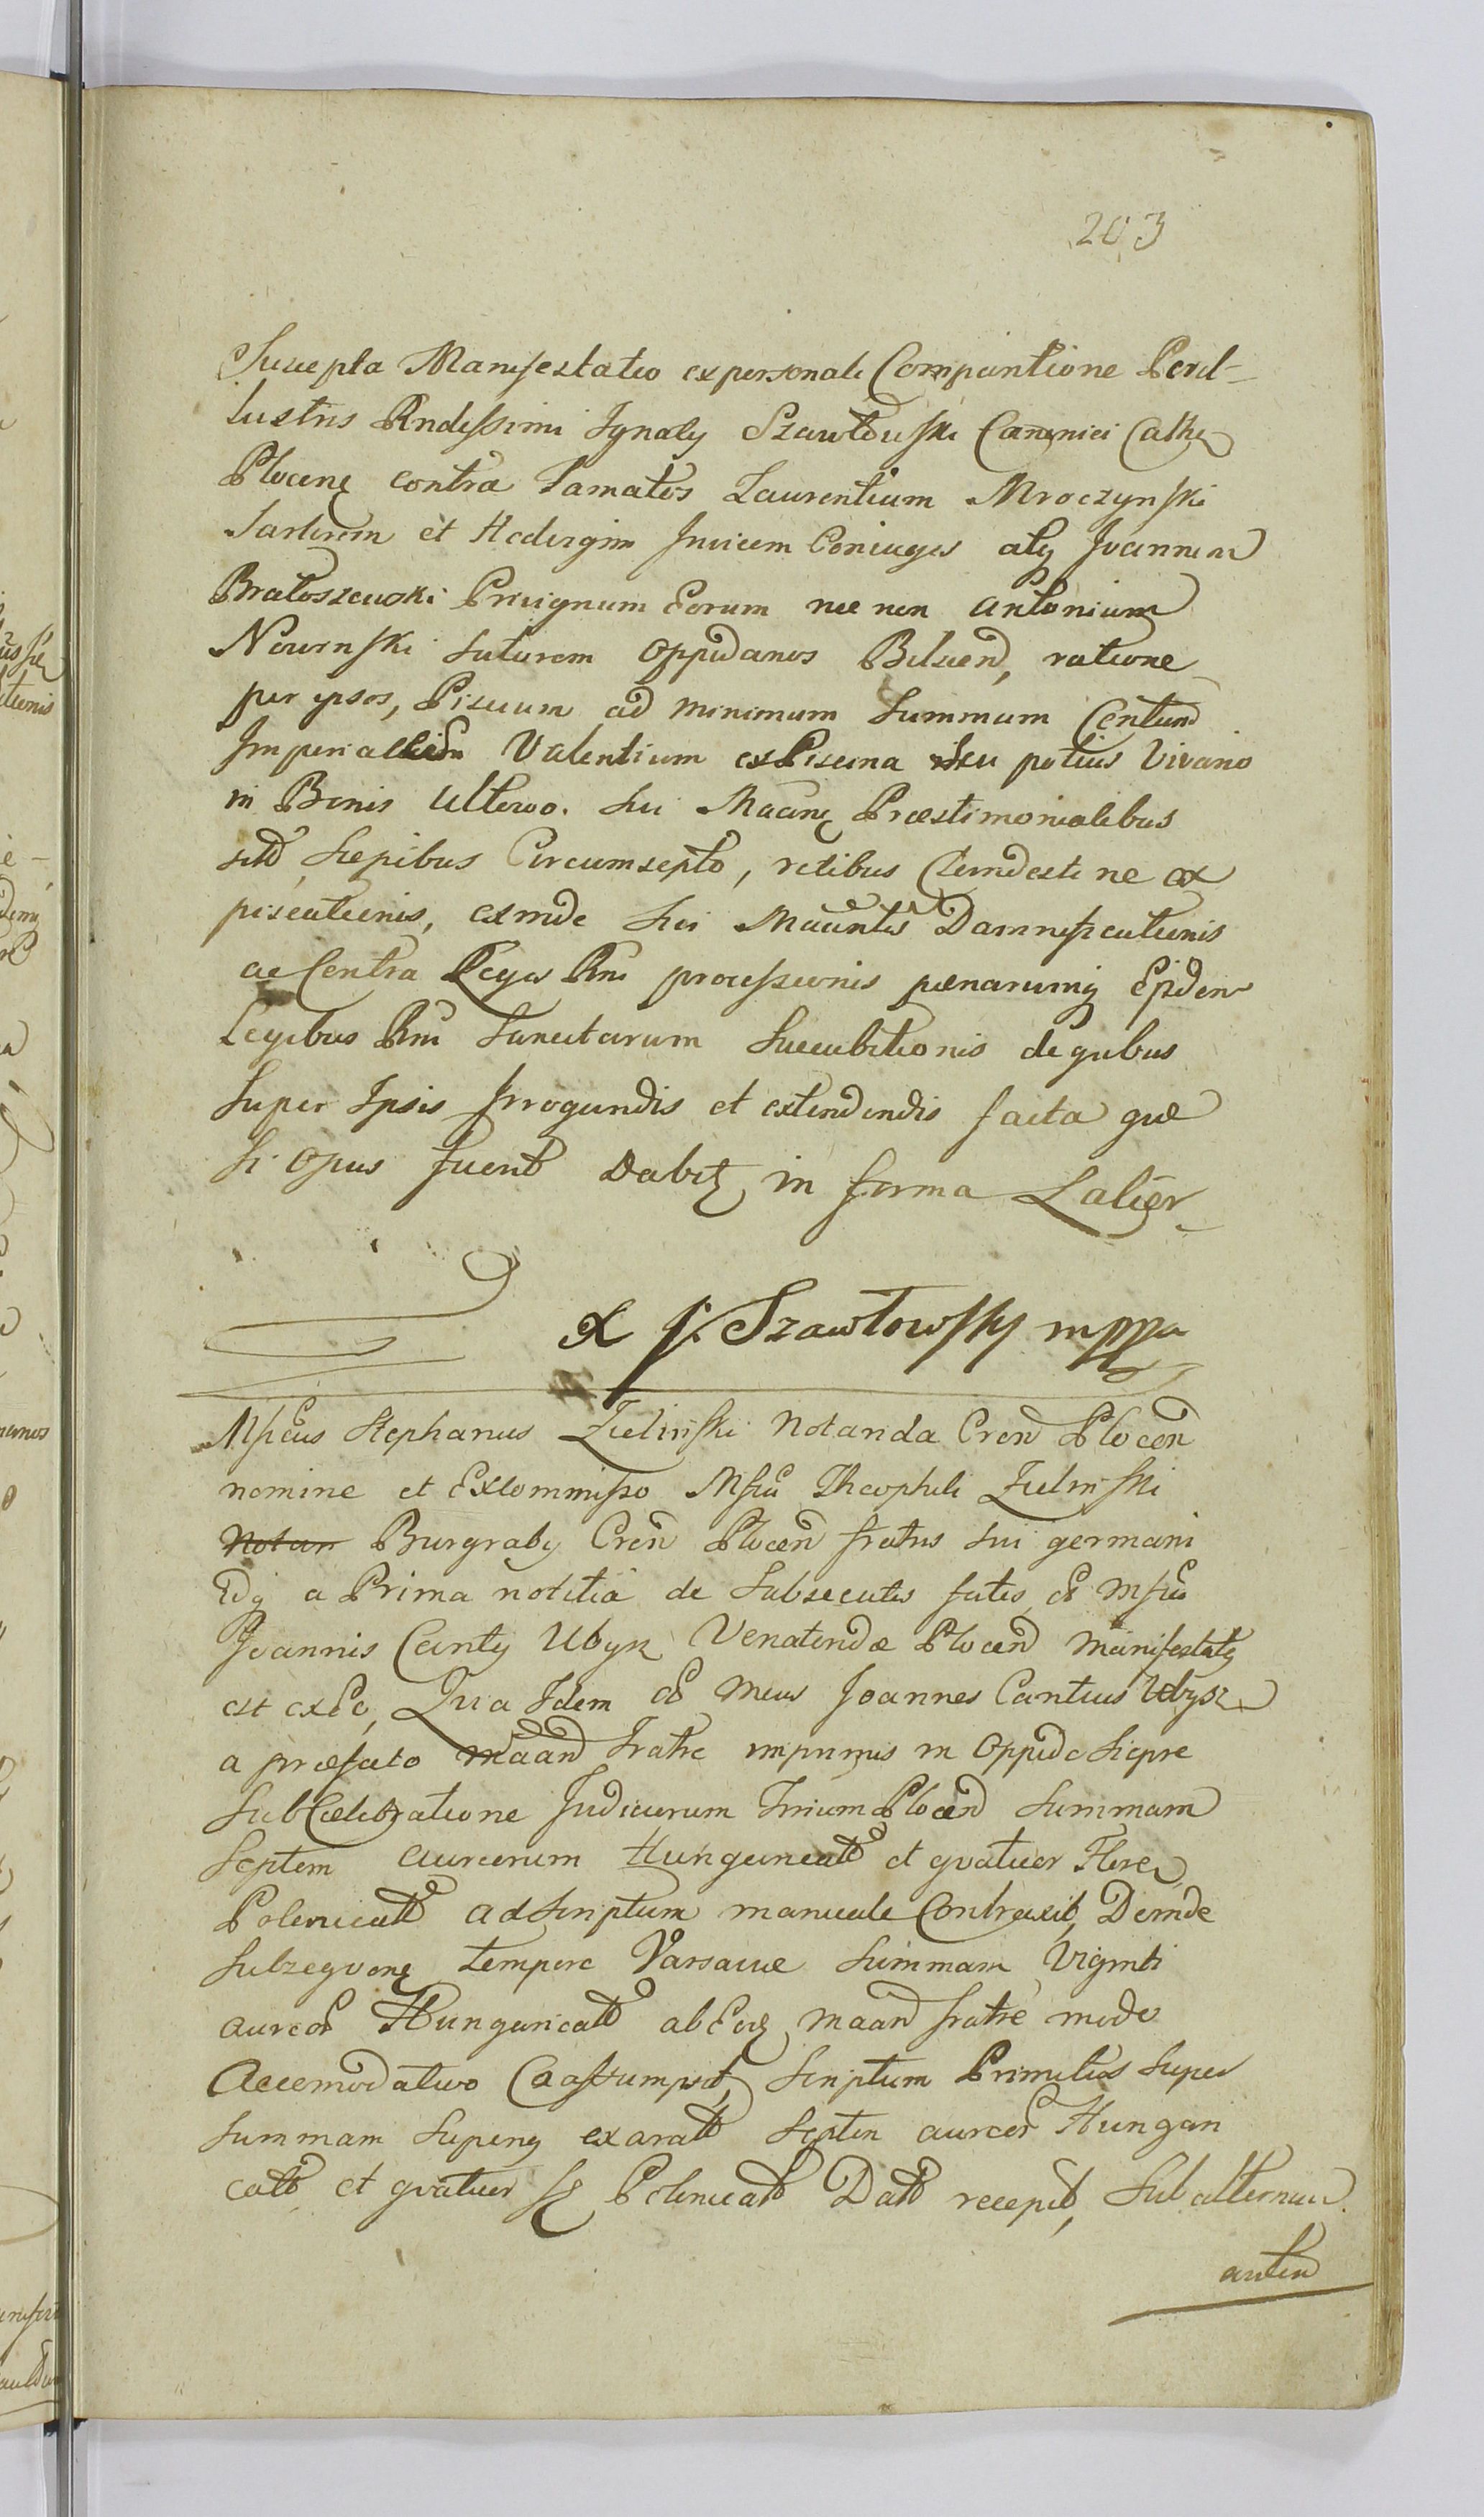 203
Suscepta Manifestatio ex personali Comparitione Peril-
lustris Rndissimi Ignaty Szawłowski Canonici Cathe
Plocen contra Famatos Laurentium Mroczynski
Sartorem et Hedvigim Invicem Coniuges atq Joannem
Bratoszewski Privignum Eorum nec non Antonium
Nowinski Sutorem Oppidanos Belscen, ratione
per ipsos, Piscium ad minimum Summam Centum
Imperialium Valentium ex Piscina seu potius Vivario
in Bonis Ulterio. Sui Maan Præstimonialibus
sito Sepibus Circumsepto, retibus Clandestine ex
piscationis, exinde Sui Maantis Damnificationis
ac Contra Leges Rni processionis pænarumq Eisdem
Legibus Rni Sancitarum Succubitionis de quibus
Super Ipsis Irrogandis et extendendis facta quæ
si Opus fuerit Dabit in forma Latior
X J. Szawłowsky mppa
Mficus Stephanus Zielinski Notarida Cren Plocen
nomine et Ex Commisso Mfici Theophili Zielinski
Notar Burgraby Cren Plocen fratris sui germani
Idq a Prima notitia de Subsecutis fatis Mfici
Joannis Canty Ubysz Venatoridæ Plocen manifestats
est ex Eo, Quia Idem Mcus Joannes Cantius Ubysz
a præfato Maan Fratre imprimis in Oppido Siepre
Sub Celebratione Judiciorum Trium Plocen Summam
Septem Aureorum Hungaricall et qvatuor Floren
Polonicall ad Scriptum manuale Contraxit, Deinde
Subseqven tempore Varsaviæ Summam Viginti
aureor Hungaricall ab Eod Maan fratre modo
Accomodativo Coassumpsit, Scriptum Primitus Super
Summam Superiq exarall Septem aureor Hungari
call et qvatuor fl Polonicall Datt recepit, Subalternum
autem